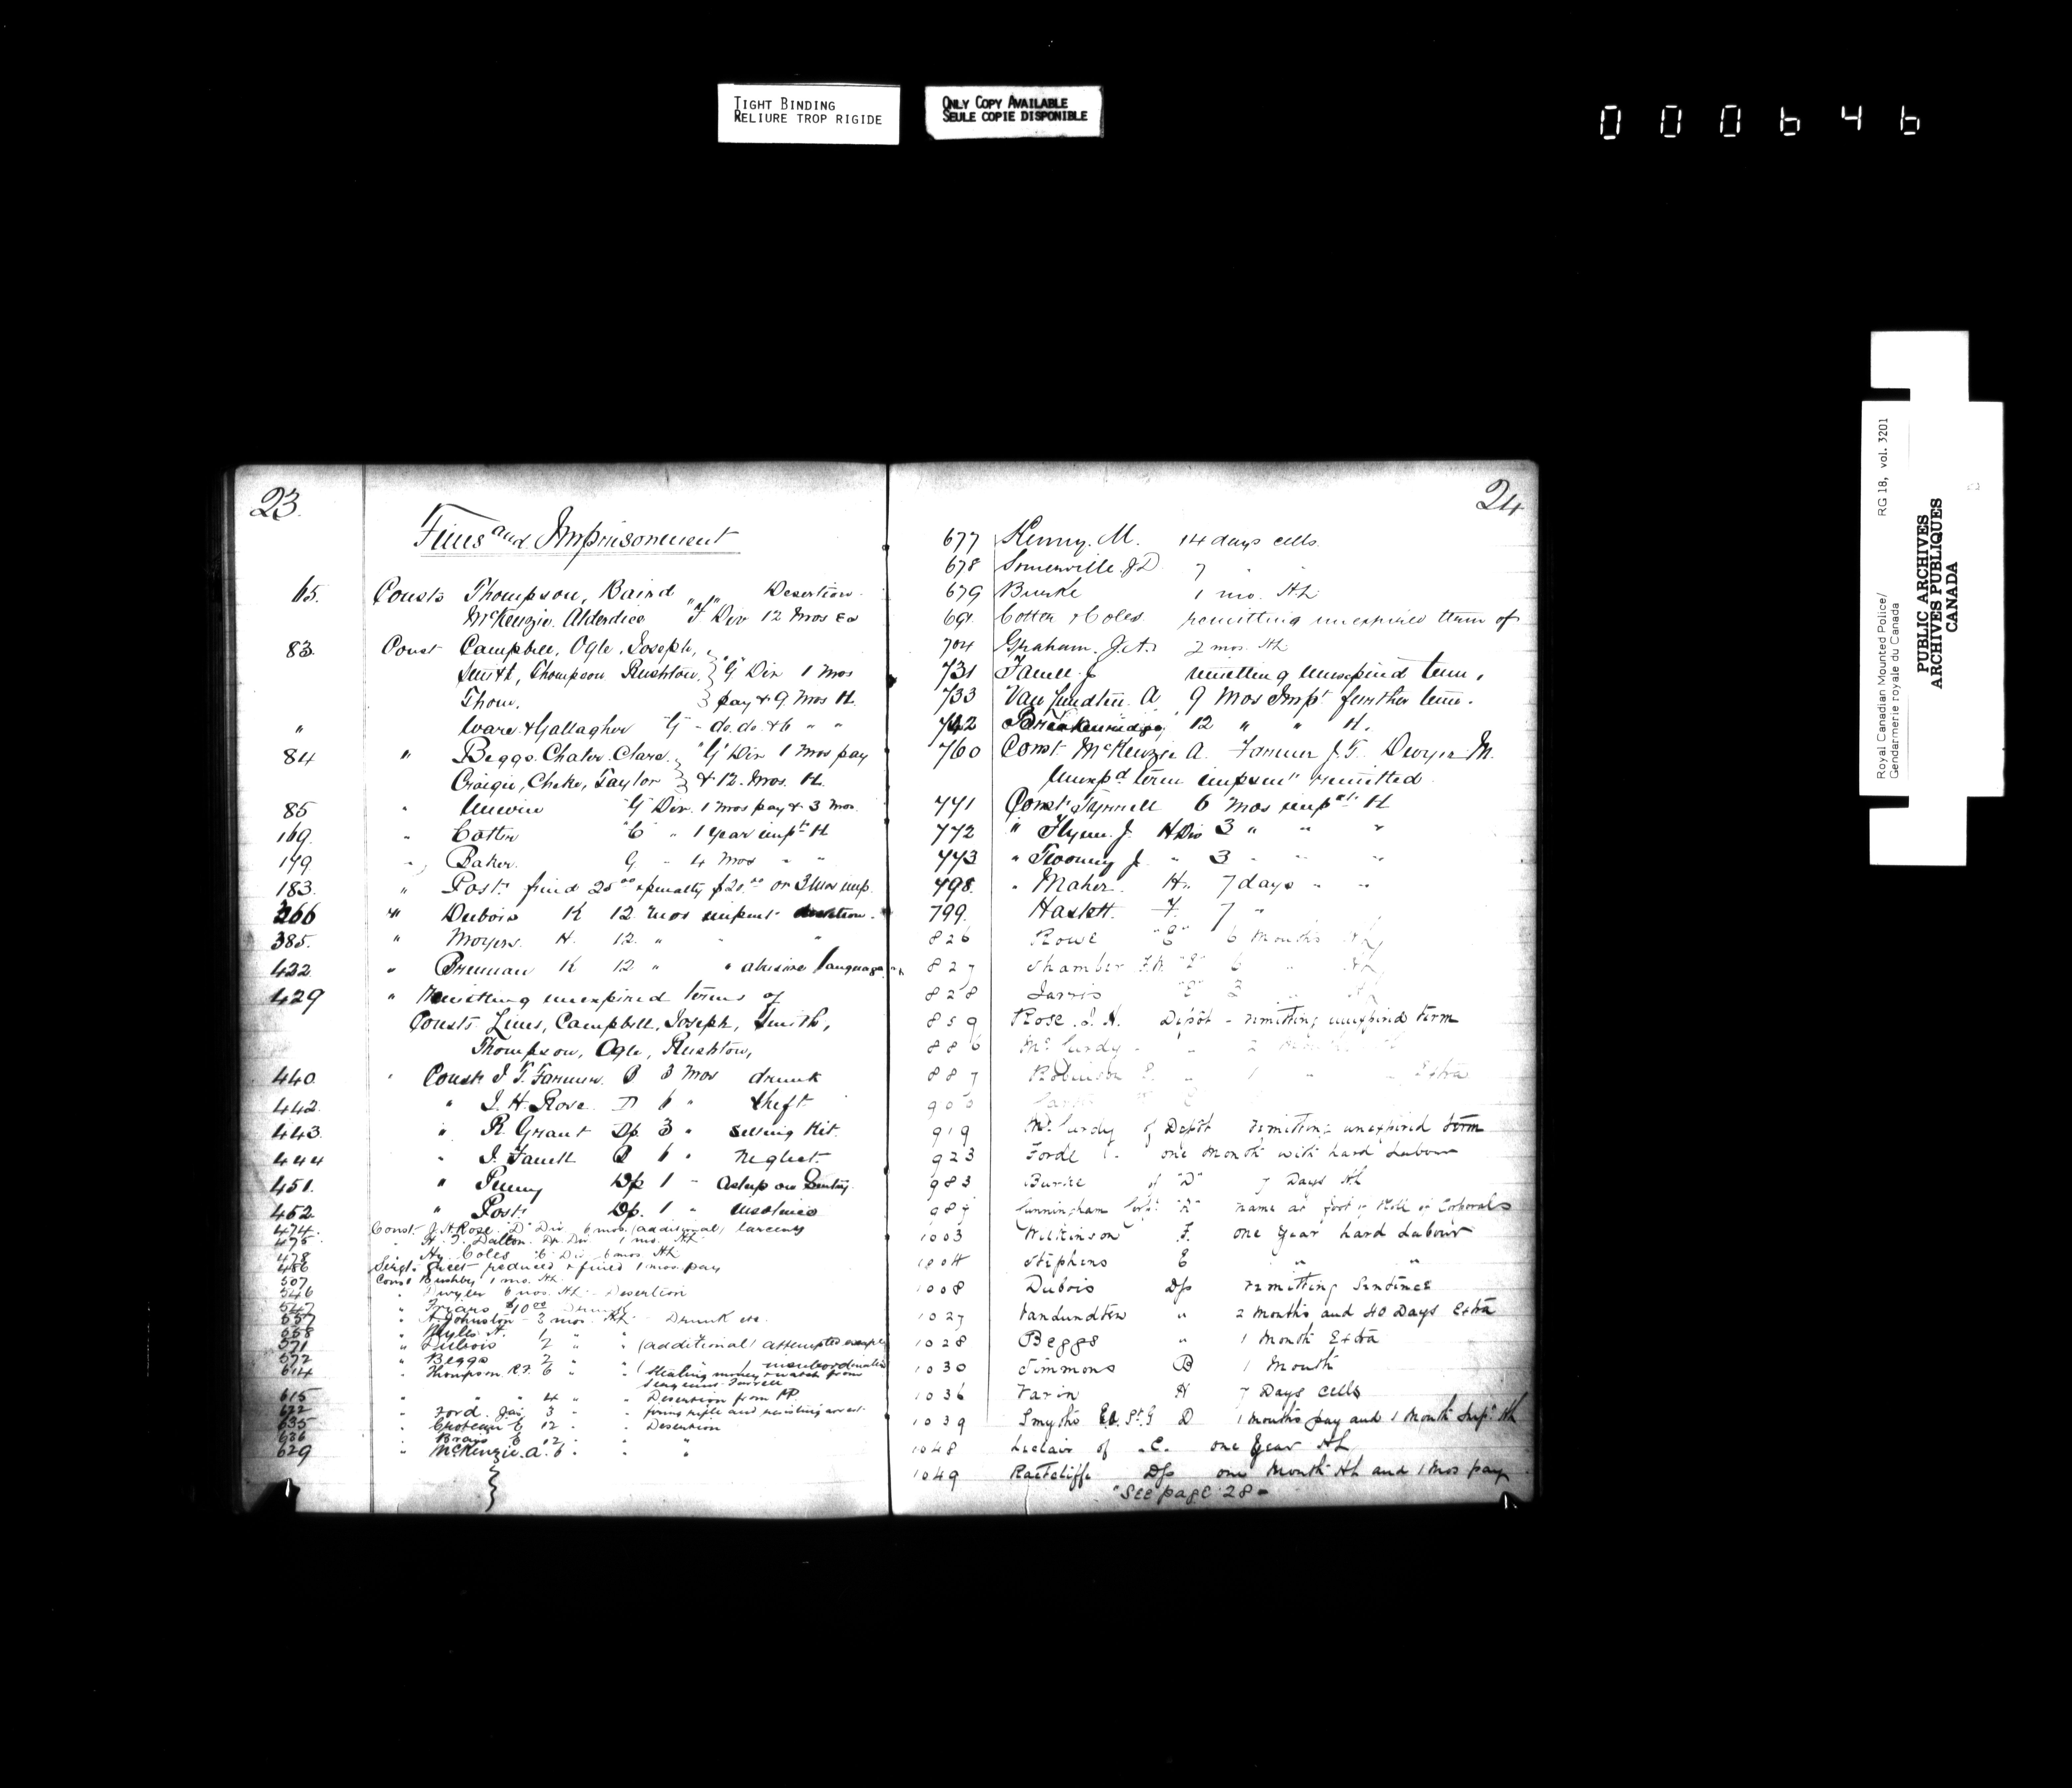 TIGHT BINDING
RELIURE TROP RIGIDE
ONLY COPY AVAILABLE
SEULE COPIE DISPONIBLE
000646
Royal Canadian Mounted Police/ RG 18, vol. 3201
Gendarmerie royale du Canada
PUBLIC ARCHIVES
ARCHIVES PUBLIQUES
CANADA
23.
Fines and Imprisonment
65. Consts Thompson, Baird Desertion.
McKenzie. Alderdice "F" Div 12 Mos Ea
83. Const Campbell, Ogle, Joseph,
Smith, Thompson Rushton, "G" Div 1 Mos
Thom, pay & 9 Mos H.
" Ware & Gallagher "G" - do. do. & 6 " "
84 " Beggs. Chater. Clare. "G" Div 1 Mos pay
Craigie, Cheke, Taylor & 12. Mos. H.
85 " Unwin "G" Div. 1 mos pay & 3 Mos.
169. " Cotter "C" " 1 year impt H
179 " Baker. G " 4 Mos " "
183. " Post. fined 20.00 & penalty $20.00 or 3 Mos imp.
366 " Dubois K 12 Mos impnt
385. " Moyers. H. 12. " " "
422. " Brennan K 12 " " abusive language
429 " Remitting unexpired terms of
Consts Lines, Campbell, Joseph, Smith,
Thompson, Ogle, Rushton,
440. " Const J. F. Farmer. B 3 Mos drunk
442. " J. H. Rose. D 6 " theft
443. " R. Grant Dp. 3 " selling Kit.
444 " J. Farrell B 6 " Neglect.
451. " Penny Dp 1 " Asleep on Sentry.
452. " Post. Dp. 1 "
474. Const. J. H. Rose. "D" Div 6 mos. (additional) larceny
475. " H. J. Dalton. Dp. Div 1 mo. HL
478 " Hy. Coles "C" Div 6 mos HL
486 Sergt. Sweet reduced & fined 1 mos. pay
507 Const Bushby 1 mo. HL.
546 " Dwyer 6 mos. HL. Desertion
547 " Friars $10.00 Drunk
557 " A. Johnston - 3 mos. HL - Drunk etc.
558 " A. 1 " "
571 " Dubois 2 " " (additional) attempted escape
572 " Beggs 2 " " insubordination
614 " Thompson. R.F. 6 " " (Stealing money & watch from
Sergeant Farrell
615 " " " 4 " " Desertion from PP.
622 " Ford. Jas 3 " " firing rifle and resisting arrest.
635 " Croteau E 12 " " Desertion
636 " Brais E 12 " " "
629 " McKenzie. A. 6 " " "
24
677 Kenny. M. 14 days cells.
678 Somerville. J.D. 7 " "
679 Burke 1 mo. HL
691 Cotter & Coles remitting unexpired term of
704 Graham. J.A. 2 mos. HL
731 Farrell. J remitting unexpired term,
733 Van Lundten. A 9 Mos Impt further term.
742 Breakenridge 12 " " H.
760 Const. McKenzie A. Farmer J. F. Dwyer M.
Unexpd term impsmt remitted.
771 Const. Tyrrell 6 Mos impnt H
772 " Flynn. J. H Div 3 " " "
773 " Twomey J. " 3 " " "
798. " Maher. H. 7 days " "
799. Haslett. F. 7 "
826 Rowe "E" 6 months HL
827 Chamber F.W. "E" 6 " HL
828 Jarvis "E" 3 " HL
859 Rose. J. H. Depôt - remitting unexpired term
886 McCurdy " " 2
887 Robinson E. " 1 " " Extra
905
919 McCurdy of Depôt remitting unexpired term
923 Forde C. one month with hard Labour
983 Burke of "D" 7 Days HL
987 Cunningham Corpl. "A" name at foot of Roll of Corporals
1003 Wilkinson F. one year hard Labour
1004 Stephens E " "
1008 Dubois Dp remitting Sentence
1027 Vandundten " 2 months and 40 Days Extra
1028 Beggs " 1 Month Extra
1030 Simmons B 1 Month
1036 Varin H 7 Days cells
1039 Smythe St. G D 1 months pay and 1 Month Impt HL
1048 Leclair of "C" one Year HL
1049 Raetcliffe Dp one month HL and 1 Mos pay
"See page 28 -